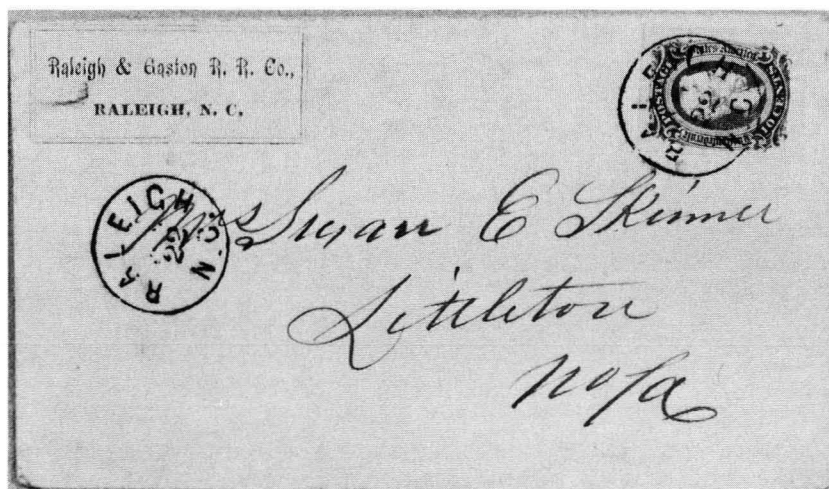 Raleigh & Gaston R. R. Co.,
RALEIGH, N. C.
RALEIGH N.C.
Mrs Susan E Skinner
Littleton
No Ca